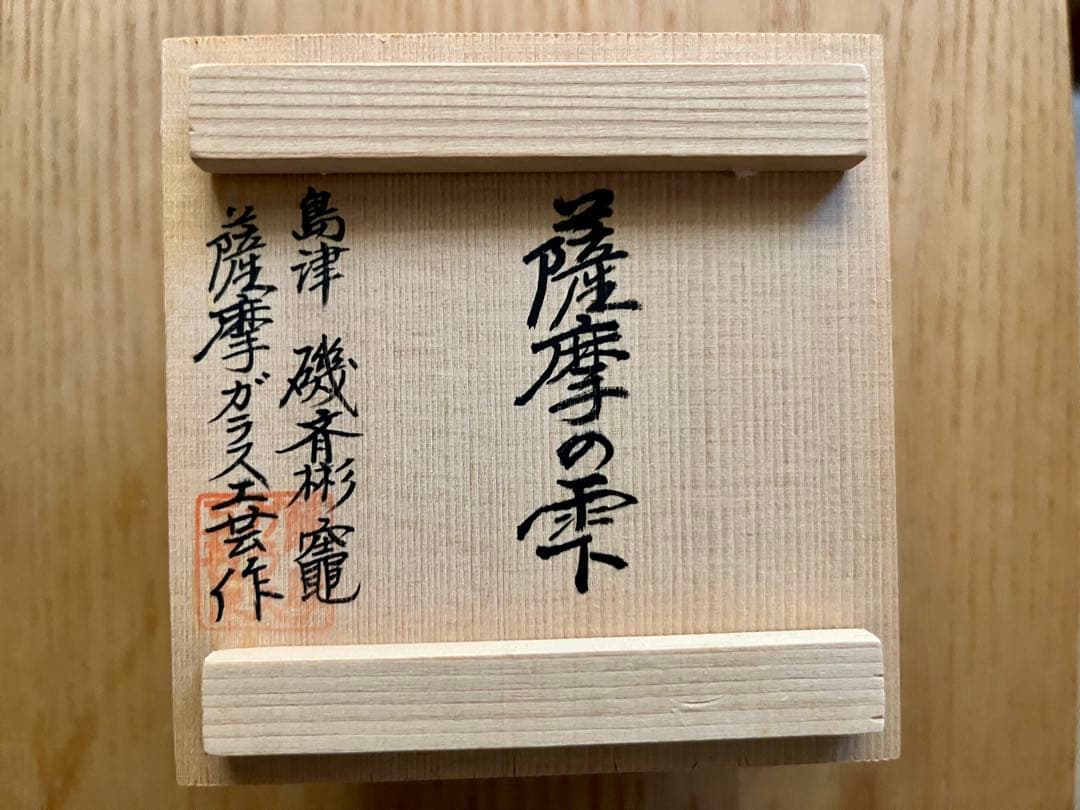 薩摩の雫
島津 磯斉彬竈
薩摩ガラス工芸作